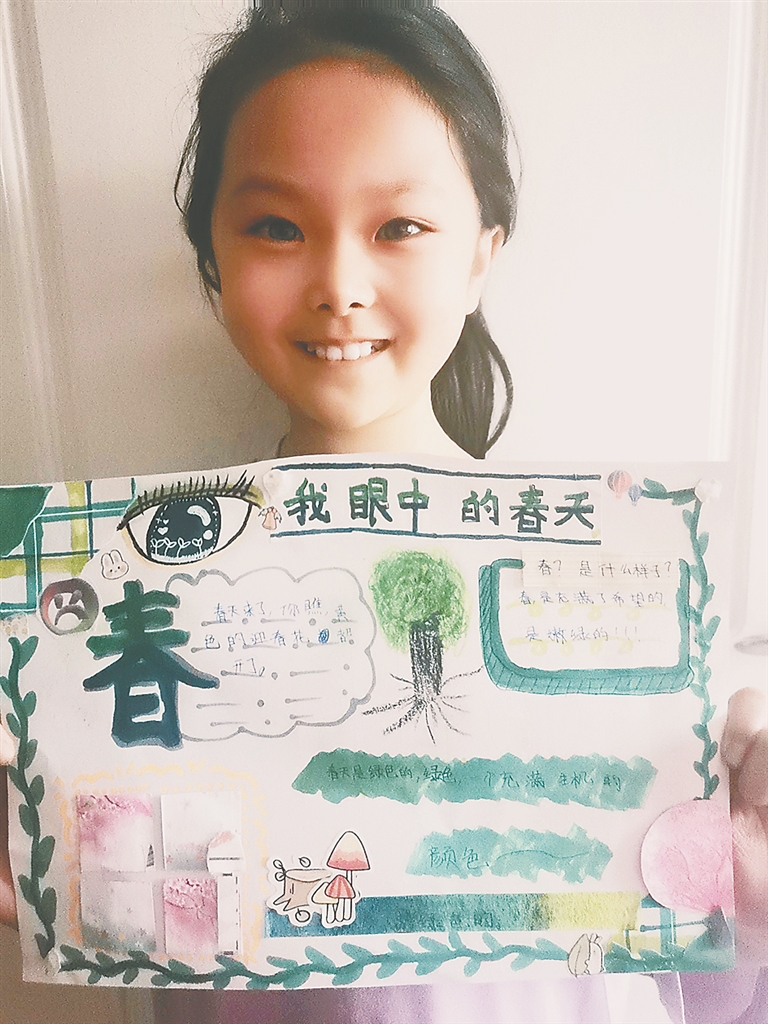 我眼中的春天
春
春天来了,你瞧,黄
色的迎春花 都
开了,
春?是什么样子?
春是充满了希望的
是嫩绿的!!!
春天是绿色的,绿色,一个充满生机的
颜色、